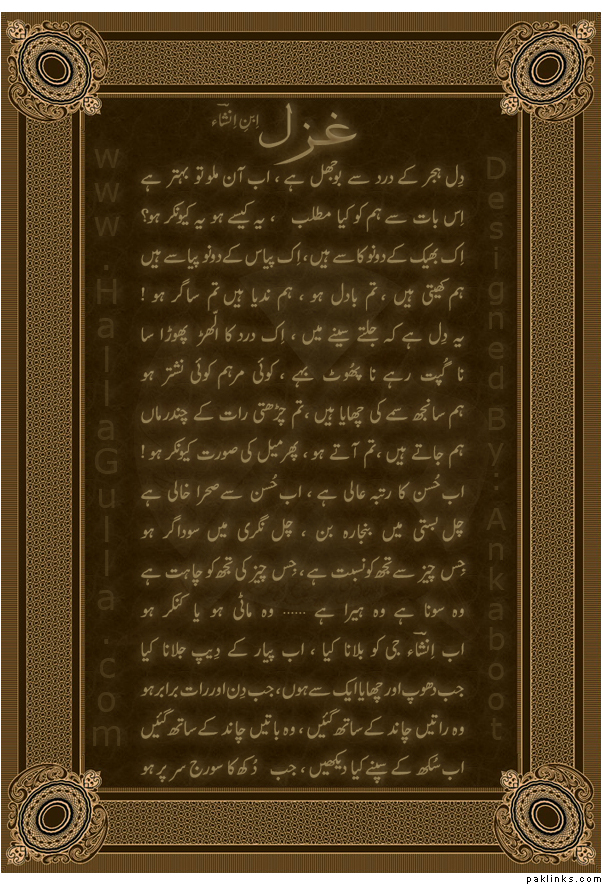 غزل
اِبنِ اِنشاؔء
دِل ہجر کے درد سے بوجھل ہے ، اب آن ملو تو بہتر ہے
اِس بات سے ہم کو کیا مطلب ، یہ کیسے ہو یہ کیونکر ہو؟
اِک بھیک کے دونو کاسے ہیں، اِک پیاس کے دونو پیاسے ہیں
ہم کھیتی ہیں ، تم بادل ہو ، ہم ندیا ہیں تم ساگر ہو !
یہ دِل ہے کہ جلتے سینے میں ، اِک درد کا الّھڑ پھوڑا سا
نا گُپت رہے نا پھُوٹ بہے ، کوئی مرہم کوئی نشتر ہو
ہم سانجھ سمے کی چھایا ہیں ،تم چڑھتی رات کے چندرماں
ہم جاتے ہیں ،تم آتے ہو ، پھر میل کی صورت کیونکر ہو !
اب حُسن کا رتبہ عالی ہے ، اب حُسن سے صحرا خالی ہے
چل بستی میں بنجارہ بن ، چل نگری میں سوداگر ہو
جِس چیز سے تجھ کو نسبت ہے ، جِس چیز کی تجھ کو چاہت ہے
وہ سونا ہے وہ ہیرا ہے ...... وہ ماٹی ہو یا کنکر ہو
اب اِنشاؔء جی کو بلانا کیا ، اب پیار کے دِیپ جلانا کیا
جب دھوپ اور چھایا ایک سے ہوں، جب دِن اور رات برابر ہو
وہ راتیں چاند کے ساتھ گئیں ، وہ باتیں چاند کے ساتھ گئیں
اب سُکھ کے سپنے کیا دیکھیں ، جب دُکھ کا سورج سر پر ہو
www.HallaGulla.com
Designed By: Ankaboot
paklinks.com